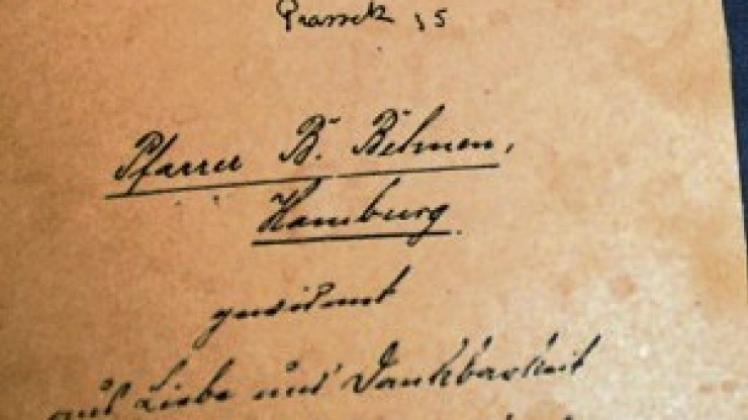 Prassek
Pfarrer B. Behnen,
Hamburg.
gewidmet
aus Liebe und Dankbarkeit